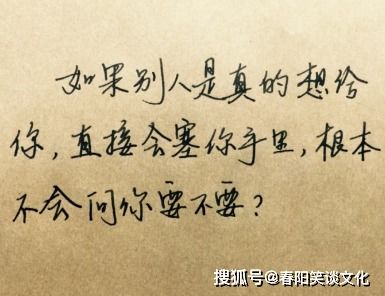 如果别人是真的想给
你,直接会塞你手里,根本
不会问你要不要?
搜狐号@春阳笑谈文化